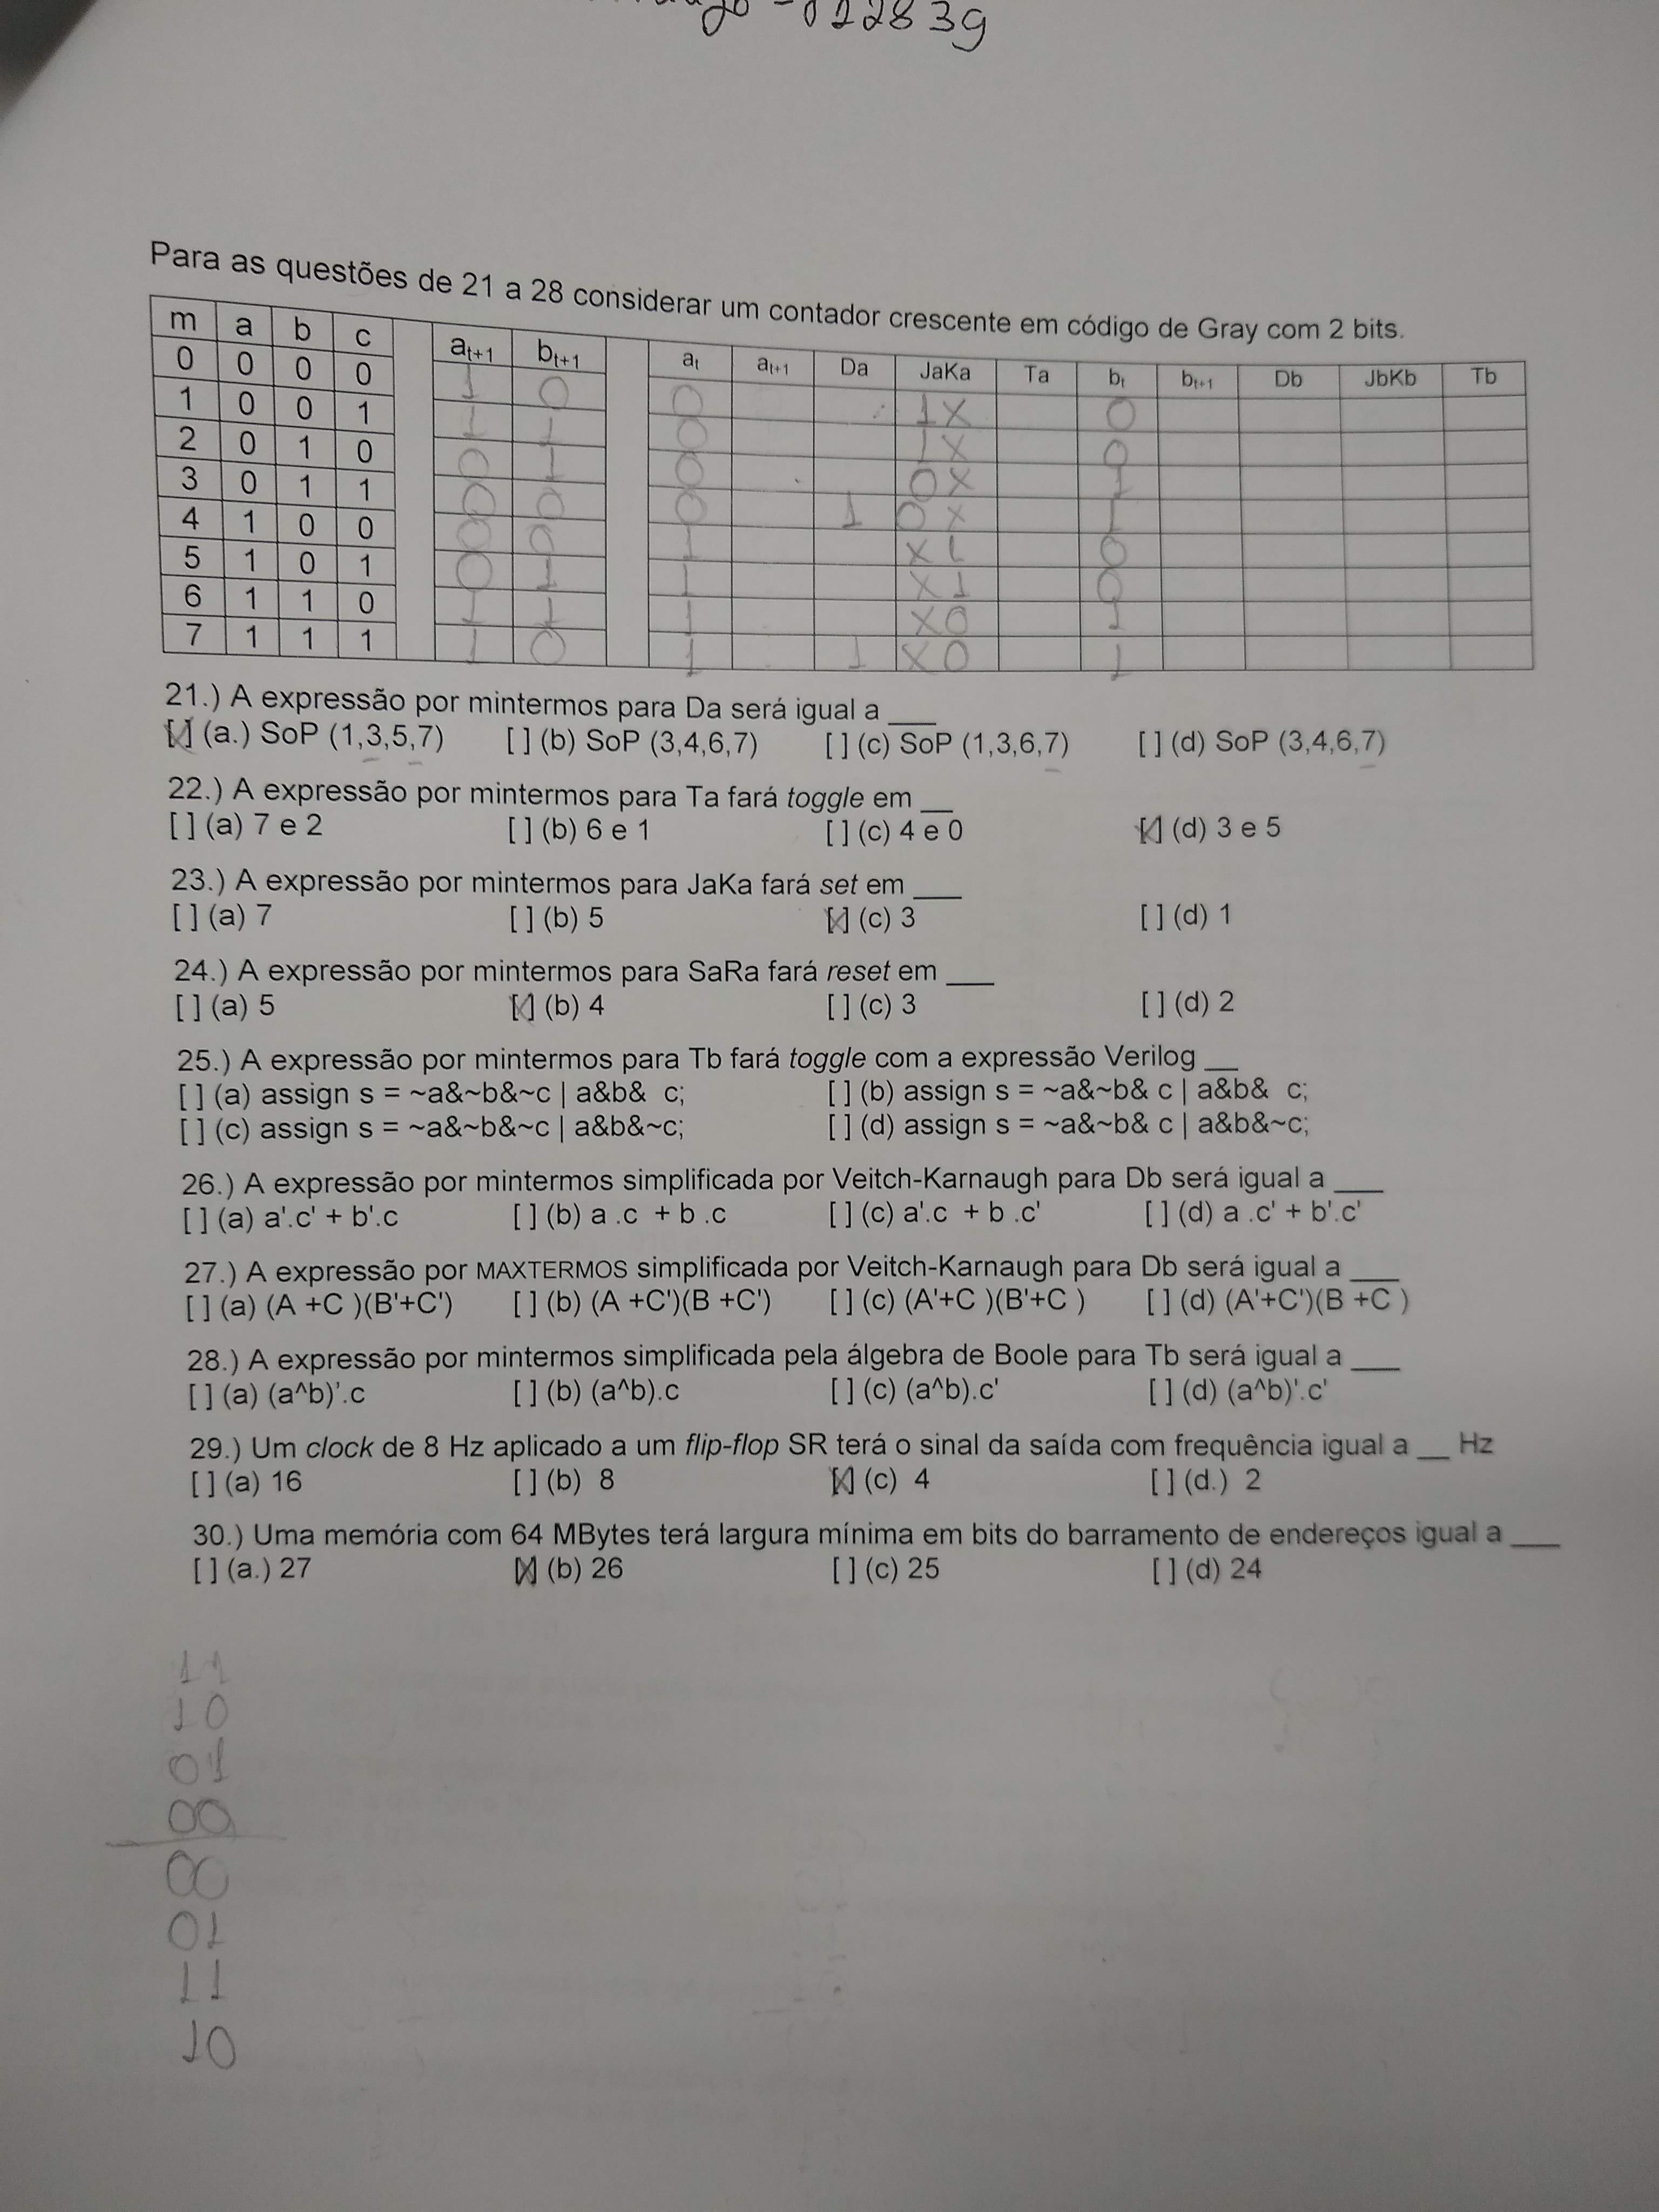 -012839
Para as questões de 21 a 28 considerar um contador crescente em código de Gray com 2 bits.
m a b c at+1 bt+1 at at+1 Da JaKa Ta bt bt+1 Db JbKb Tb
0 0 0 0 1 0 0 1X 0
1 0 0 1 1 1 0 1X 0
2 0 1 0 0 1 0 0X 1
3 0 1 1 0 0 0 1 0X 1
4 1 0 0 0 0 1 X1 0
5 1 0 1 0 1 1 X1 0
6 1 1 0 1 1 1 X0 1
7 1 1 1 1 0 1 1 X0 1
21.) A expressão por mintermos para Da será igual a ___
[X] (a.) SoP (1,3,5,7) [ ] (b) SoP (3,4,6,7) [ ] (c) SoP (1,3,6,7) [ ] (d) SoP (3,4,6,7)
22.) A expressão por mintermos para Ta fará toggle em __
[ ] (a) 7 e 2 [ ] (b) 6 e 1 [ ] (c) 4 e 0 [X] (d) 3 e 5
23.) A expressão por mintermos para JaKa fará set em ___
[ ] (a) 7 [ ] (b) 5 [X] (c) 3 [ ] (d) 1
24.) A expressão por mintermos para SaRa fará reset em ___
[ ] (a) 5 [X] (b) 4 [ ] (c) 3 [ ] (d) 2
25.) A expressão por mintermos para Tb fará toggle com a expressão Verilog __
[ ] (a) assign s = ~a&~b&~c | a&b& c; [ ] (b) assign s = ~a&~b& c | a&b& c;
[ ] (c) assign s = ~a&~b&~c | a&b&~c; [ ] (d) assign s = ~a&~b& c | a&b&~c;
26.) A expressão por mintermos simplificada por Veitch-Karnaugh para Db será igual a ___
[ ] (a) a'.c' + b'.c [ ] (b) a .c + b .c [ ] (c) a'.c + b .c' [ ] (d) a .c' + b'.c'
27.) A expressão por MAXTERMOS simplificada por Veitch-Karnaugh para Db será igual a ___
[ ] (a) (A +C )(B'+C') [ ] (b) (A +C')(B +C') [ ] (c) (A'+C )(B'+C ) [ ] (d) (A'+C')(B +C )
28.) A expressão por mintermos simplificada pela álgebra de Boole para Tb será igual a ___
[ ] (a) (a^b)'.c [ ] (b) (a^b).c [ ] (c) (a^b).c' [ ] (d) (a^b)'.c'
29.) Um clock de 8 Hz aplicado a um flip-flop SR terá o sinal da saída com frequência igual a __ Hz
[ ] (a) 16 [ ] (b) 8 [X] (c) 4 [ ] (d.) 2
30.) Uma memória com 64 MBytes terá largura mínima em bits do barramento de endereços igual a ___
[ ] (a.) 27 [X] (b) 26 [ ] (c) 25 [ ] (d) 24
11
10
01
00
00
01
11
10